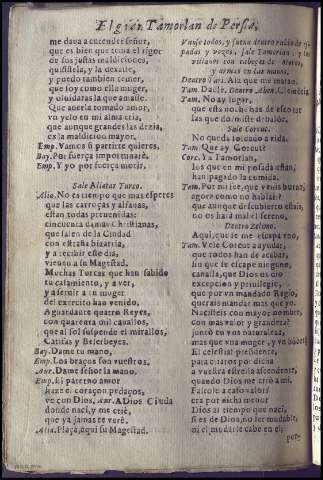 El gran Tamorlan de Persia,
me daua a entender señor,
que es bien que tema el rigor
de sus justas maldiciones,
quisistela, y la dexaste,
y puedo tambien temer,
que soy como ella muger,
y oluidaràs la que amaste.
Que aueria tomado amor,
vo yelo en mi alma cria,
que aunque grandes las dezia,
es la maldicion mayor.
Emp. Vamos si partirte quieres.
Bay. Por fuerça importunarè.
Emp. Y yo por fuerça morir.
Sale Aliatar Turco.
Alia. No es tiempo que mas esperes
que las carroças y alfanas,
estan todas preuenidas:
cincuenta damas Christianas,
que salen de la Ciudad
con estraña bizarria,
y a recibir este dia,
vienen a su Magestad.
Muchas Turcas que han sabido
tu casamiento, y a ver,
y a seruir a tu muger
del exercito han venido.
Aguardante quatro Reyes,
con quarenta mil cauallos,
que al Sol suspende el mirallos,
Califas y Belerbeyes.
Bay. Dame tu mano,
Emp. Los braços son vuestros.
Aur. Dame señor la mano.
Emp. El paterno amor
haze el coraçon pedaços,
ve con Dios. Aur. A Dios Ciuda
donde nacì, y me criè,
que ya jamas te verè.
Alia. Plaça, aqui su Magestad.
Vanse todos, y suena dentro ruido de
padas y vozes, sale Tamorlan, y los
villanos con cabeças de Moros,
y armas en las manos.
Dentro Vari. Ala que me matan.
Tam. Dadle. Dentro Aben. Clemēcia
Tam. No ay lugar,
que esta noche has de escotar
las que dormiste debalde.
Sale Corcut.
No queda soldado a vida.
Tam. Que ay Corcut?
Corc. Ya Tamorlan,
los que en mi posada estan,
han pagado la comida.
Tam. Por mi fee, que venis
agora como no hablais?
que aunque descubierto estais,
no os harà mal el sereno,
Dentro Zelimo.
Aqui, que se me escapa vno,
Tam. Vele Corcut a ayudar,
que todos han de acabar,
sin que se escape ninguno,
canalla, que Dios os dio
excepcion y priuilegio,
que por vn mandado Regio,
querais mandar mas que yo.
Nacisteis con mayor nombre,
con mas valor y grandeza?
juntò en vos naturaleza,
mas que vna muger, y vn hōbre?
El celestial presidente,
para otros por dicha
a vuestra estrella ascendente,
quando Dios me criò a mi.
Faltole a caso valor?
era por dicha menor
Dios al tiempo que nacì,
si es de Dios, no ser mudable,
ni el mudarle cabe en el;
por-